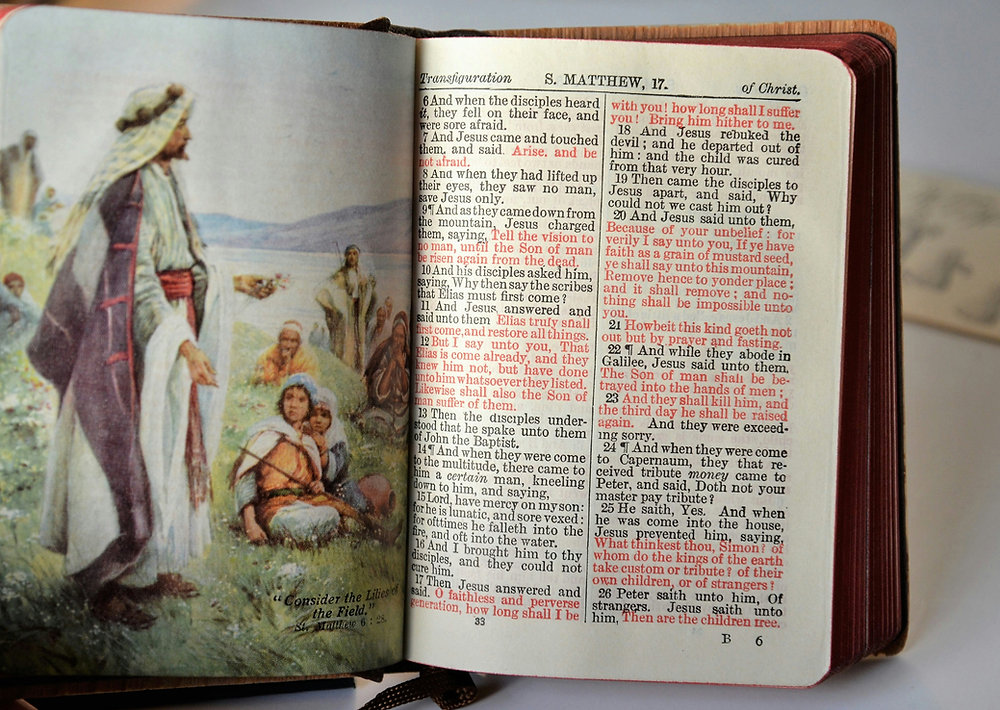 "Consider the Lilies of
the Field."
St. Matthew 6 : 28.
Transfiguration S. MATTHEW, 17. of Christ.
6 And when the disciples heard
it, they fell on their face, and
were sore afraid.
7 And Jesus came and touched
them, and said, Arise, and be
not afraid.
8 And when they had lifted up
their eyes, they saw no man,
save Jesus only.
9 ¶ And as they came down from
the mountain, Jesus charged
them, saying, Tell the vision to
no man, until the Son of man
be risen again from the dead.
10 And his disciples asked him,
saying, Why then say the scribes
that Elias must first come?
11 And Jesus answered and
said unto them Elias truly shall
first come, and restore all things.
12 But I say unto you, That
Elias is come already, and they
knew him not, but have done
unto him whatsoever they listed.
Likewise shall also the Son of
man suffer of them.
13 Then the disciples under-
stood that he spake unto them
of John the Baptist.
14 ¶ And when they were come
to the multitude, there came to
him a certain man, kneeling
down to him, and saying,
15 Lord, have mercy on my son:
for he is lunatic, and sore vexed:
for ofttimes he falleth into the
fire, and oft into the water.
16 And I brought him to thy
disciples, and they could not
cure him.
17 Then Jesus answered and
said. O faithless and perverse
generation, how long shall I be
33
with you! how long shall I suffer
you! Bring him hither to me.
18 And Jesus rebuked the
devil; and he departed out of
him: and the child was cured
from that very hour.
19 Then came the disciples to
Jesus apart, and said, Why
could not we cast him out?
20 And Jesus said unto them,
Because of your unbelief: for
verily I say unto you, If ye have
faith as a grain of mustard seed,
ye shall say unto this mountain,
Remove hence to yonder place;
and it shall remove; and no-
thing shall be impossible unto
you.
21 Howbeit this kind goeth not
out but by prayer and fasting.
22 ¶ And while they abode in
Galilee, Jesus said unto them.
The Son of man shall be be-
trayed into the hands of men;
23 And they shall kill him, and
the third day he shall be raised
again. And they were exceed-
ing sorry.
24 ¶ And when they were come
to Capernaum, they that re-
ceived tribute money came to
Peter, and said, Doth not your
master pay tribute?
25 He saith, Yes. And when
he was come into the house,
Jesus prevented him, saying,
What thinkest thou, Simon? of
whom do the kings of the earth
take custom or tribute? of their
own children, or of strangers?
26 Peter saith unto him, Of
strangers. Jesus saith unto
him, Then are the children free.
B 6